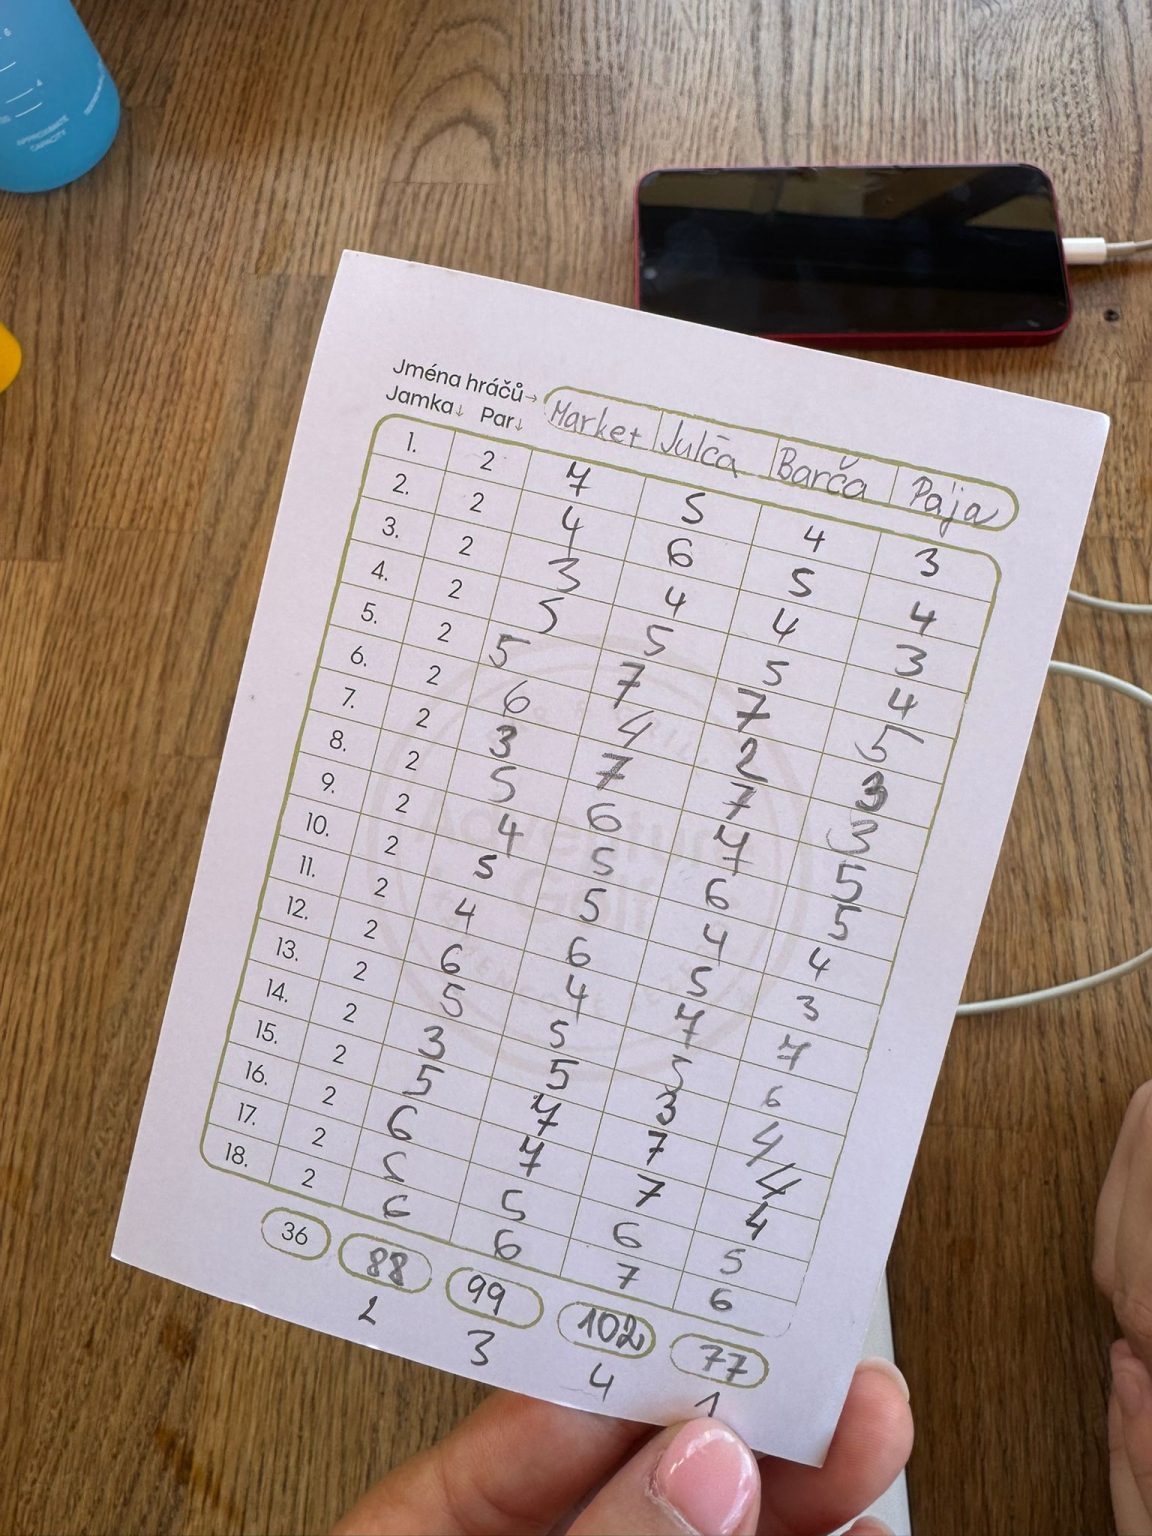 Jména hráčů→ Market Julča Barča Pája
Jamka↓ Par↓
1. 2 7 5 4 3
2. 2 4 6 5 4
3. 2 3 4 4 3
4. 2 5 5 5 4
5. 2 5 7 7 5
6. 2 6 4 2 3
7. 2 3 7 7 3
8. 2 5 6 7 5
9. 2 4 5 6 5
10. 2 5 5 4 4
11. 2 4 6 5 3
12. 2 6 4 7 7
13. 2 5 5 5 6
14. 2 3 5 3 4
15. 2 5 7 7 4
16. 2 6 7 7 4
17. 2 5 6 5
18. 2 6 6 7 6
36 88 99 102 77
2 3 4 1
Adventure
Golf
APPROXIMATE
CAPACITY